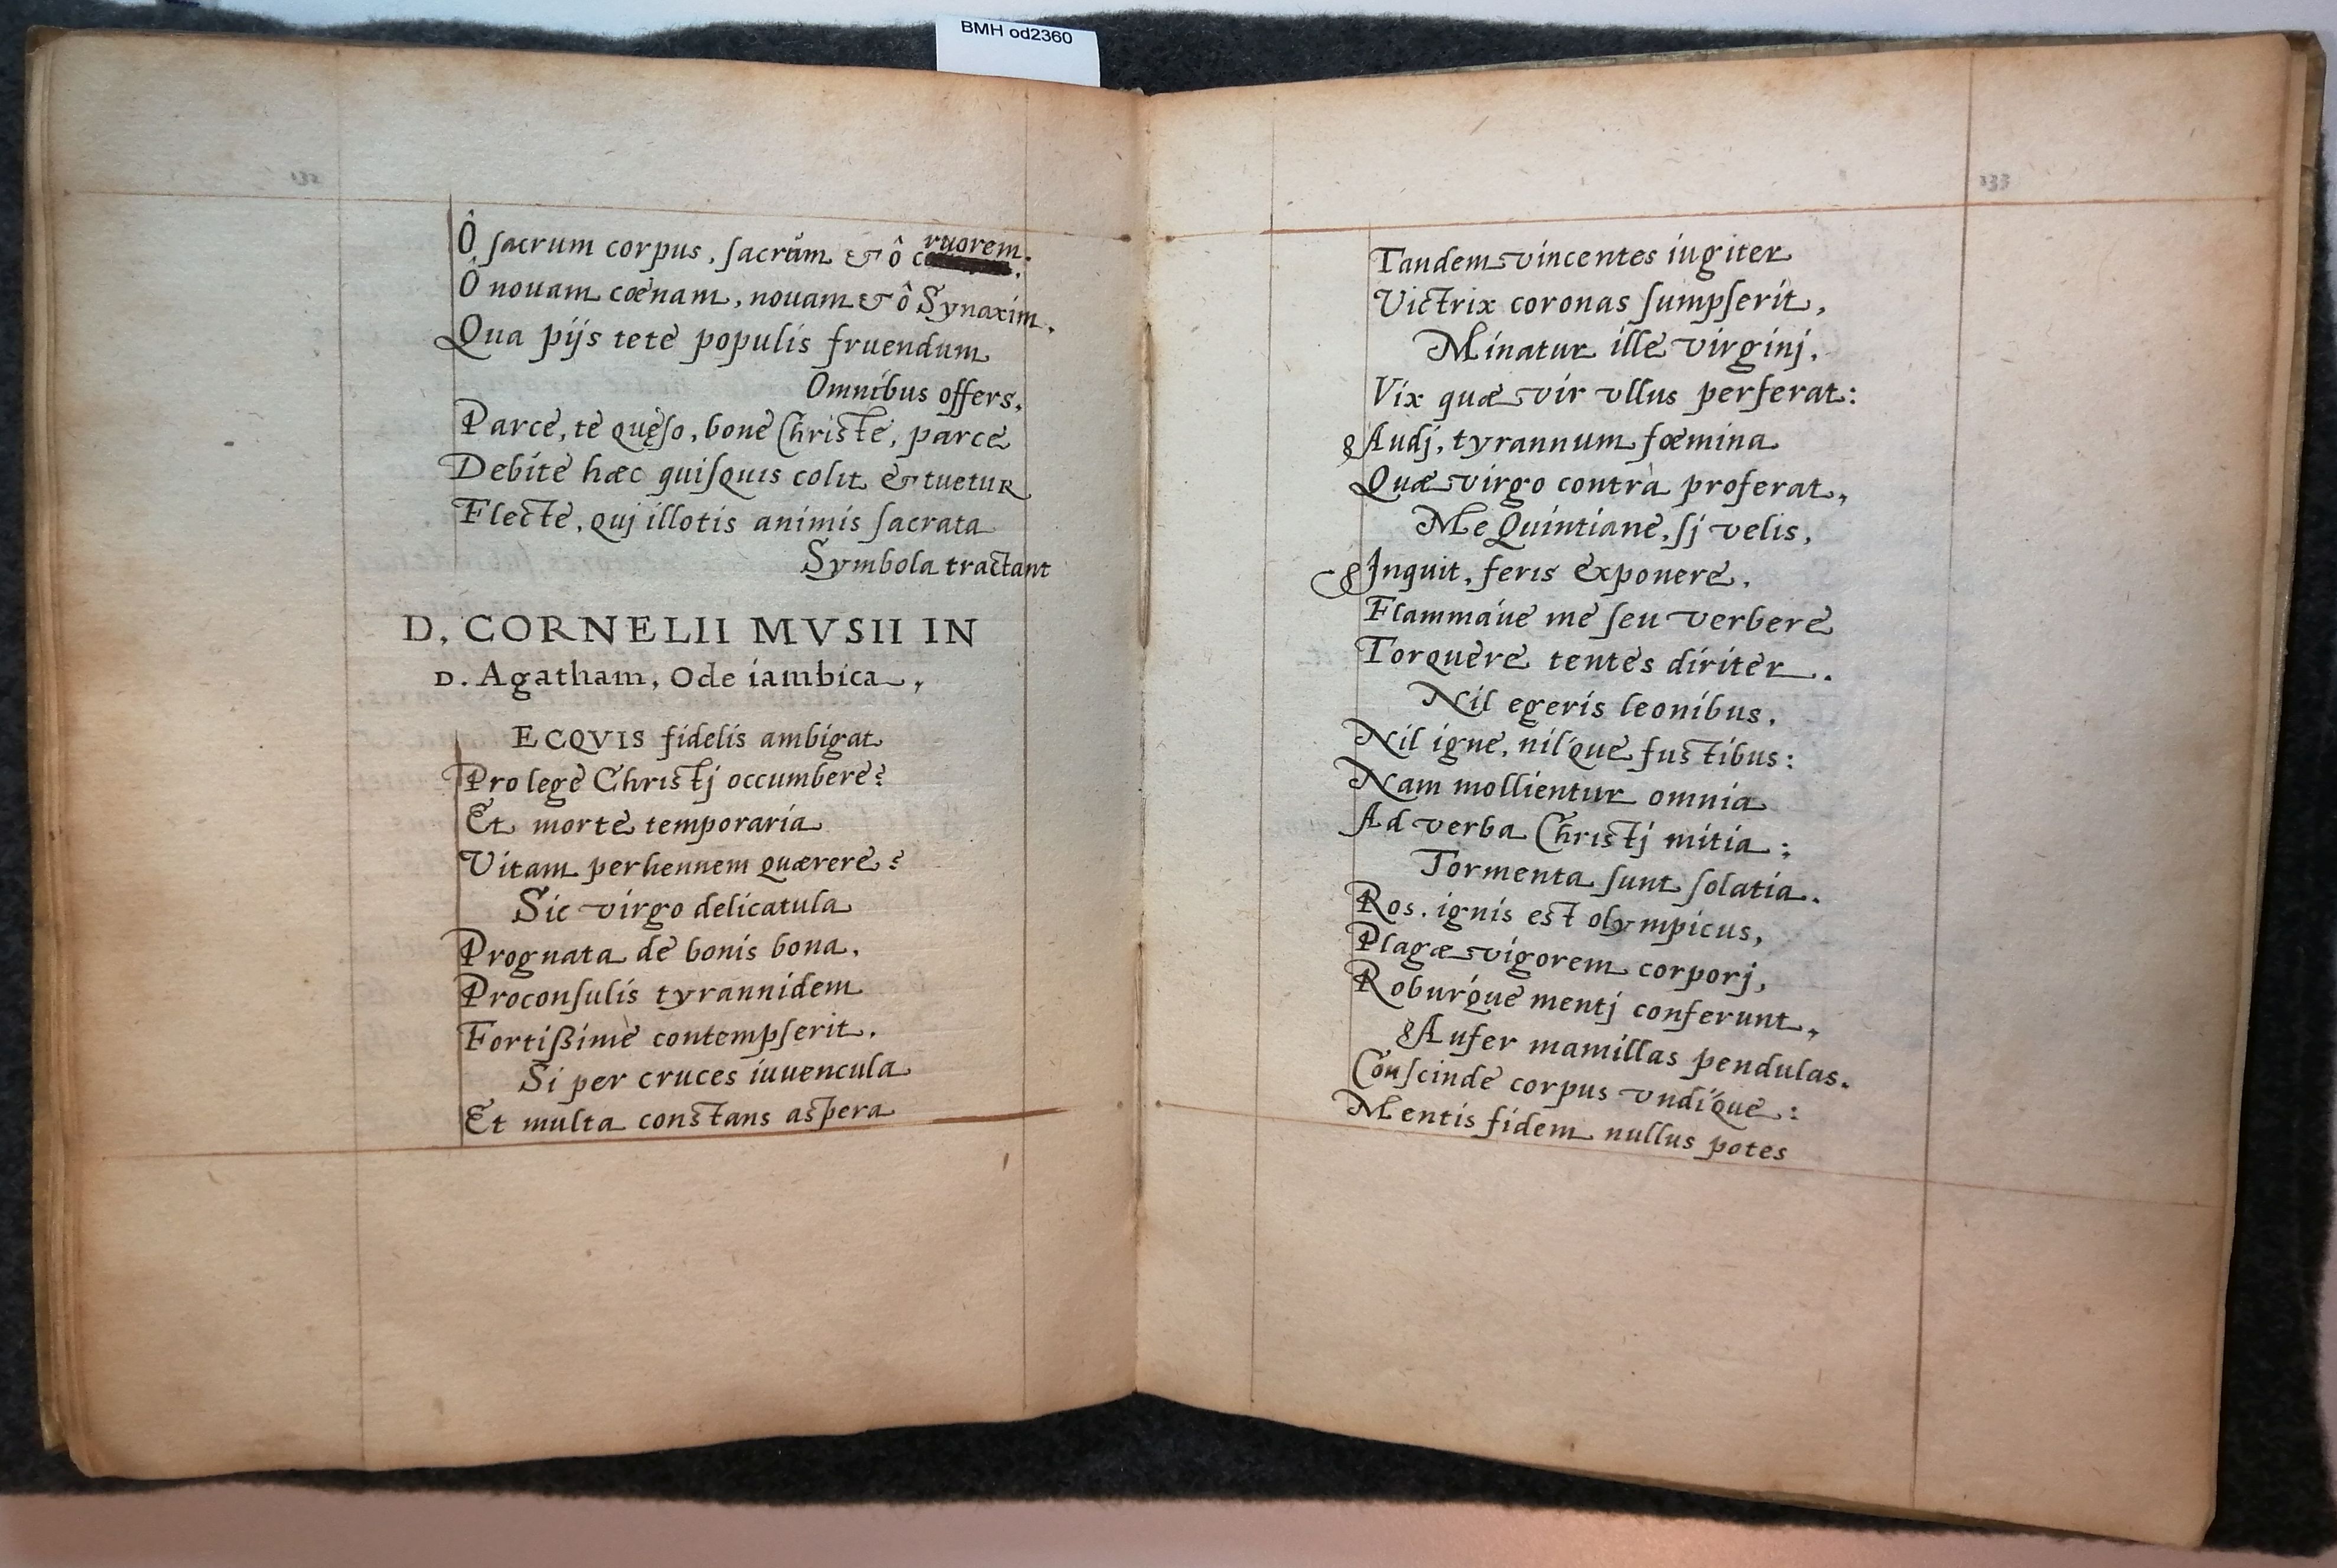 BMH od2360
132
Ô sacrum corpus, sacrûm et ô cruorem:
Ô nouam cœnam, nouam et ô Synaxim.
Qua pijs tete populis fruendum
Omnibus offers.
Parce, te quęso, bone Christe, parce
Debite hæc quisquis colit et tuetur
Flecte, quj illotis animis sacrata
Symbola tractant
D. CORNELII MVSII IN
D. Agatham, Ode iambica.
ECQVIS fidelis ambigat
Pro lege Christj occumbere?
Et morte temporaria
Vitam perhennem quærere?
Sic virgo delicatula
Prognata de bonis bona,
Proconsulis tyrannidem
Fortißime contempserit.
Si per cruces iuuencula
Et multa constans aspera
133
Tandem vincentes iugiter
Victrix coronas sumpserit,
Minatur ille virginj,
Vix quæ vir vllus perferat:
Audj, tyrannum fœmina
Quæ virgo contrà proferat,
Me Quintiane, sj velis,
Inquit, feris exponere,
Flammáue me seu verbere
Torquere tentes diriter.
Nil egeris leonibus,
Nil igne, nilque fustibus:
Nam mollientur omnia
Ad verba Christj mitia:
Tormenta sunt solatia.
Ros, ignis est olympicus,
Plagæ vigorem corporj,
Roburque mentj conferunt,
Aufer mamillas pendulas.
Conscinde corpus vndique:
Mentis fidem nullus potes